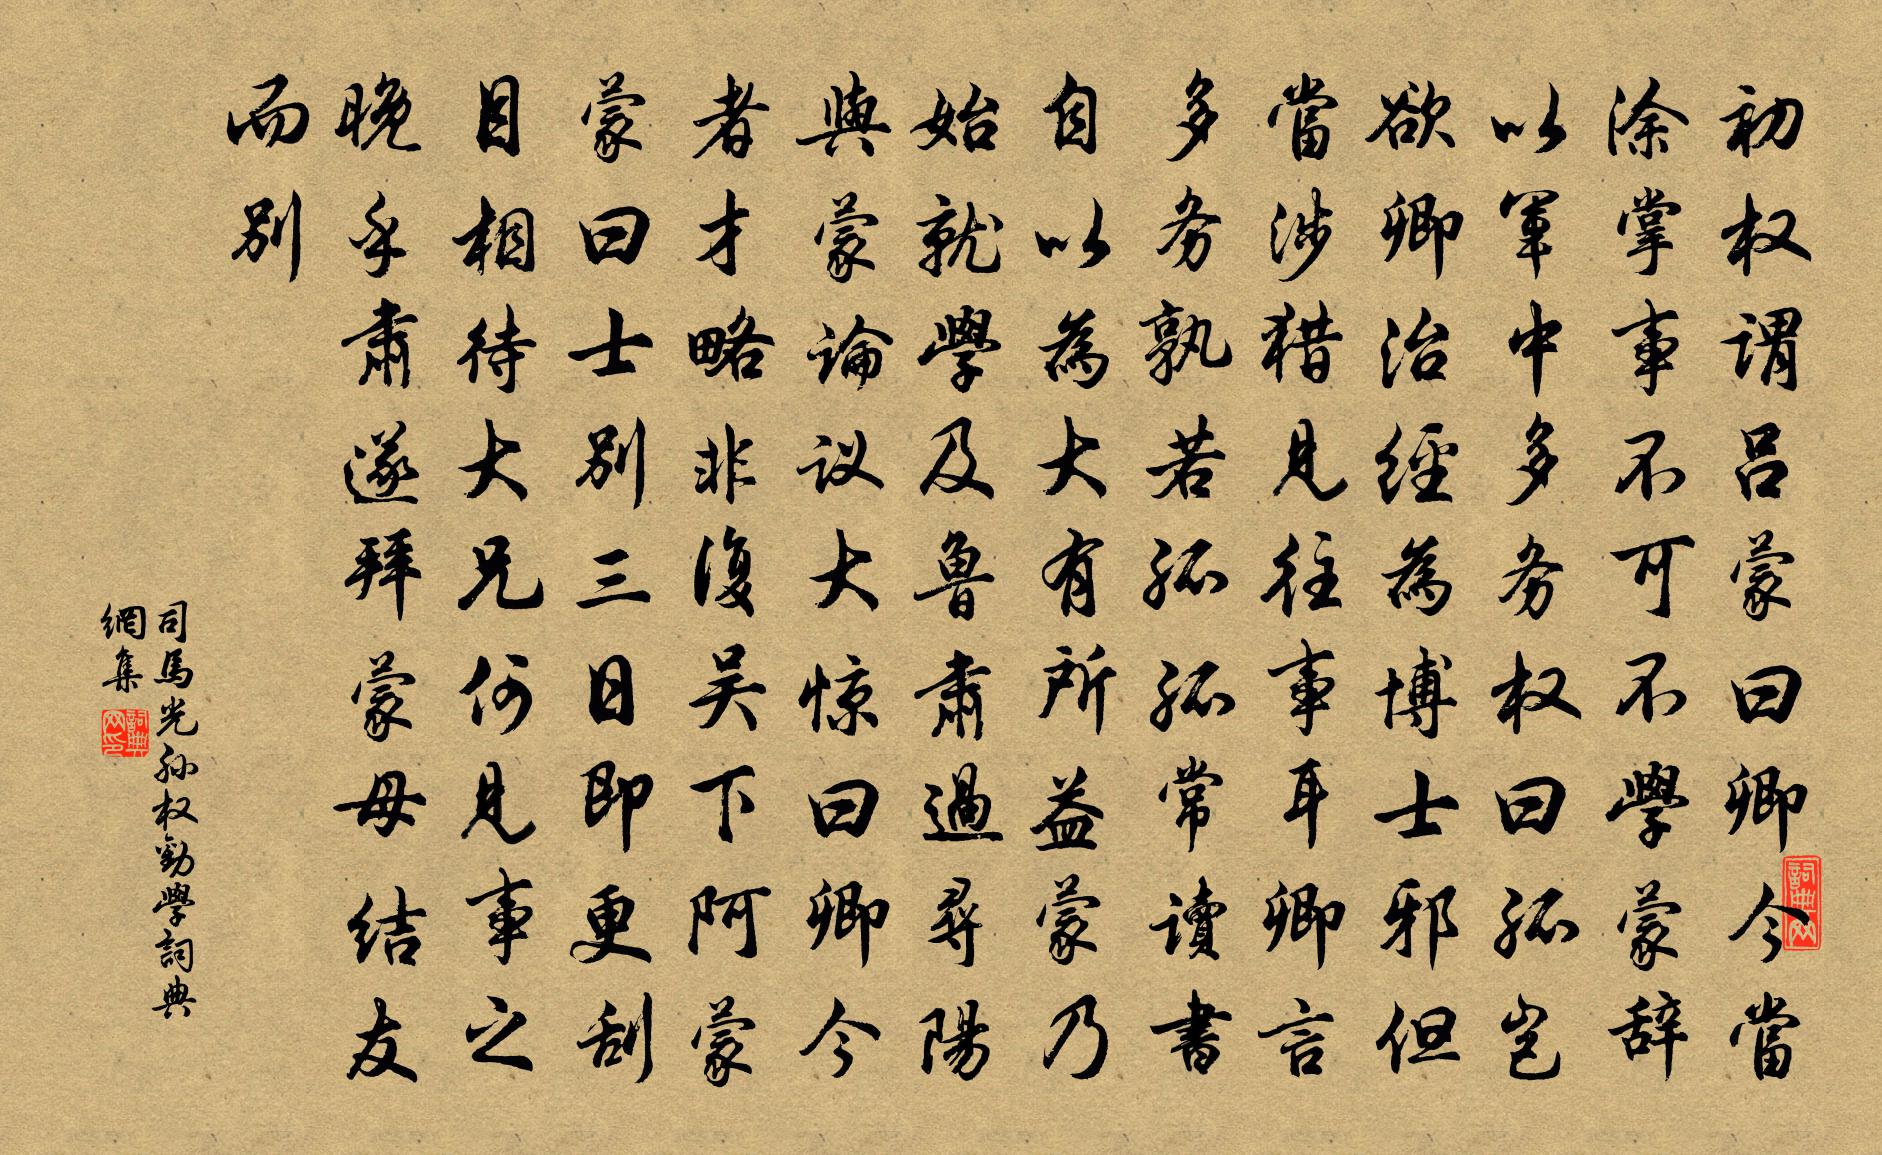 初权谓吕蒙曰卿今當
涂掌事不可不學蒙辞
以軍中多务权曰孤岂
欲卿治經為博士邪但
當涉猎見往事耳卿言
多务孰若孤孤常讀書
自以為大有所益蒙乃
始就學及魯肅過尋陽
與蒙論议大惊曰卿今
者才略非復吴下阿蒙
蒙曰士别三日即更刮
目相待大兄何見事之
晚乎肅遂拜蒙母结友
而别
司馬光孙权勸學詞典
網集
詞典网
詞典网印